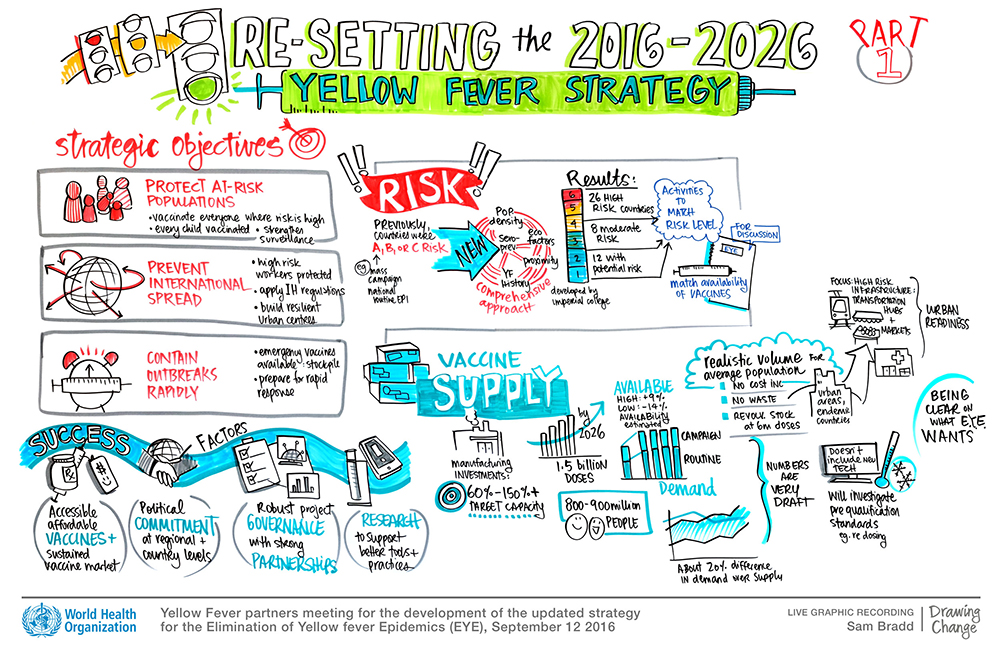 RE-SETTING the 2016-2026
YELLOW FEVER STRATEGY
PART
1
strategic objectives
PROTECT AT-RISK
POPULATIONS
• vaccinate everyone where risk is high
• every child vaccinated • strengthen
surveillance
PREVENT
INTERNATIONAL
SPREAD
• high risk
workers protected
• apply IH regulations
• build resilient
urban centres
CONTAIN
OUTBREAKS
RAPIDLY
• emergency vaccines
available: stockpile
• prepare for rapid
response
SUCCESS
FACTORS
Accessible
affordable
VACCINES +
sustained
vaccine market
Political
COMMITMENT
at regional +
country levels
Robust project
GOVERNANCE
with strong
PARTNERSHIPS
RESEARCH
to support
better tools +
practices
!! RISK !!
PREVIOUSLY,
countries were
A, B, or C RISK
eg mass
campaign
national
routine EPI
NEW
POP.
density
eco
factors
proximity
YF
history
Sero-
prev.
comprehensive
approach
Results:
6
5
4
3
2
1
26 HIGH
RISK countries
8 moderate
RISK
12 with
potential risk
developed by
imperial college
ACTIVITIES
TO
MATCH
RISK LEVEL
FOR
DISCUSSION
EYE
match availability
of VACCINES
VACCINE
SUPPLY
manufacturing
INVESTMENTS:
60% - 150% +
TARGET CAPACITY
by
2026
1.5 billion
DOSES
800-900million
PEOPLE
AVAILABLE
HIGH: +9%
LOW: -14%
AVAILABILITY
estimated
CAMPAIGN
ROUTINE
Demand
About 20% difference
IN demand over supply
realistic volume FOR
average population
NO COST INC
NO WASTE
REVOLV. STOCK
at 6m doses
NUMBERS
ARE
VERY
DRAFT
Urban
areas,
endemic
countries
FOCUS: HIGH RISK
INFRASTRUCTURE:
TRANSPORTATION
HUBS
+
MARKETS
URBAN
READINESS
BEING
CLEAR ON
WHAT EYE
WANTS
Doesn't
include new
TECH
Will investigate
pre qualification
standards
eg. re dosing
World Health
Organization
Yellow Fever partners meeting for the development of the updated strategy
for the Elimination of Yellow fever Epidemics (EYE), September 12 2016
LIVE GRAPHIC RECORDING
Sam Bradd
Drawing
Change